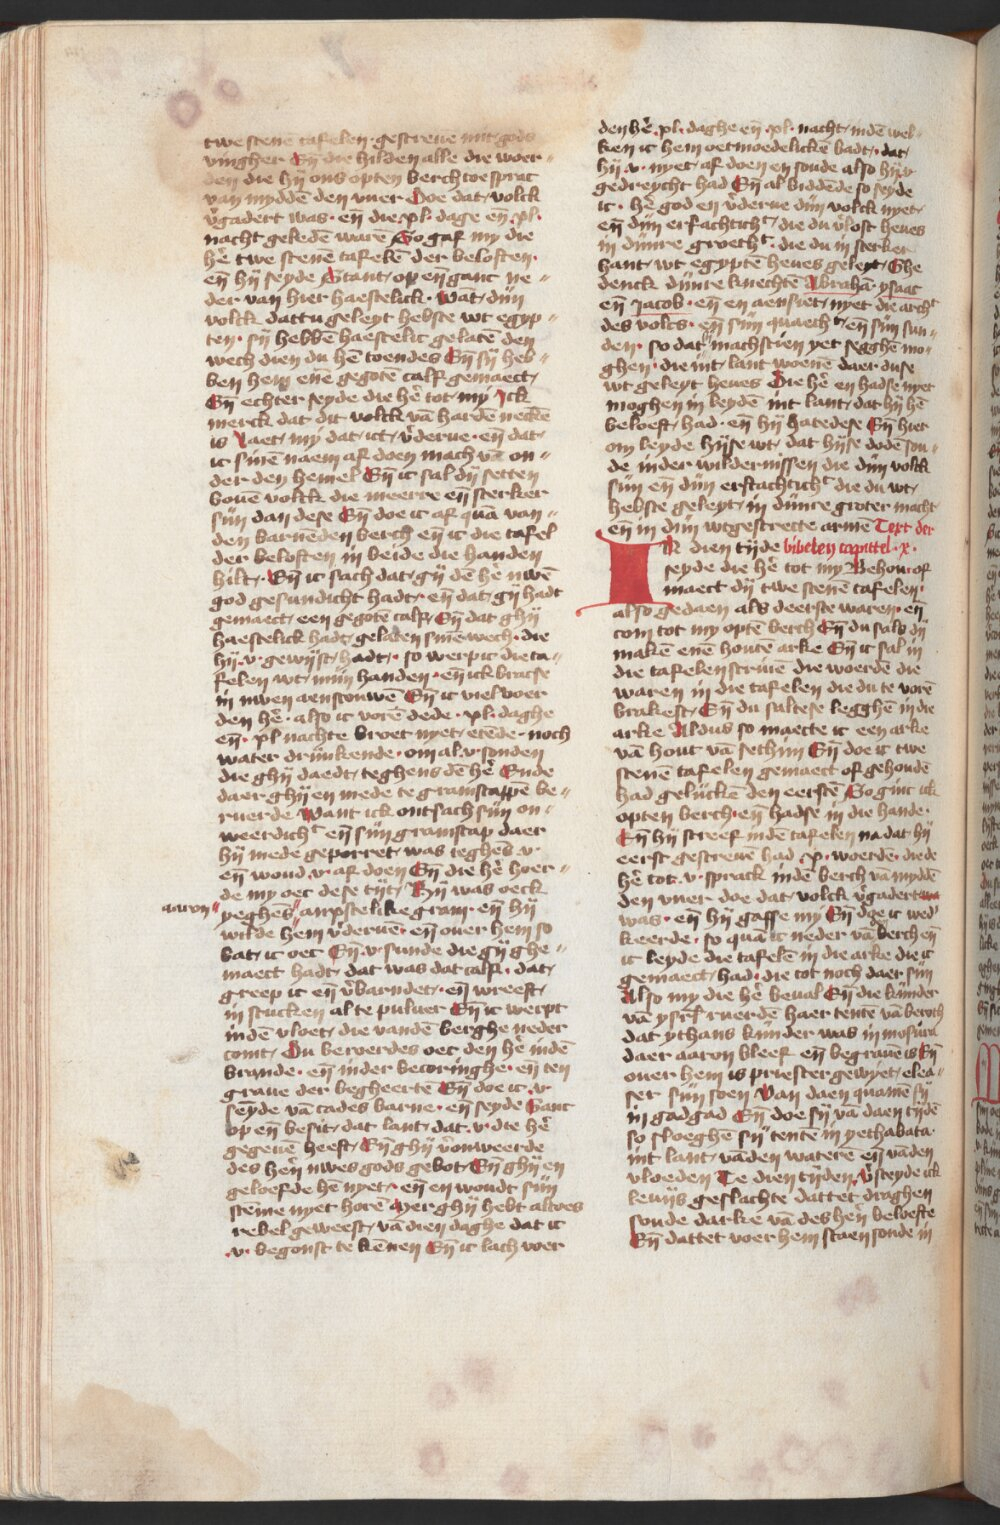 twe stenē tafelen · gestreue mit gods
vingher Eñ die hilden alle die woer〃
den die hÿ ons opten berch toe sprac
van myddē den vuer Doe dat volck
v̄gadert was · eñ die xl· dage eñ xl·
nacht geledē warē So gaf my die
hē twe stenē tafelē der beloften ·
eñ hÿ seyde Stant op eñ ganc ne〃
der van hier haestelick · Wāt dijn
volck dattu geleyt hebste wt egyp〃
ten · sÿ hebbē haestelic gelatē den
wech dien du hē toendes Eñ sÿ heb〃
ben hem enē gegotē calf gemaect
Eñ echter seyde die hē tot my Ick
merck dat dit volck vā hardē neckē
is Laet my dat ict v̄derue · eñ dat
ic sinē naem af doen mach vā on〃
der den hemel Eñ ic sal dÿ setten
bouē volck die meerre eñ sterker
sijn dan dese Eñ doe ic af quā van〃
den barnēden berch eñ ic die tafel
der beloften in beide die handen
hilt · Eñ ic sach dat gÿ dē hē uwē
god gesundicht hadt eñ dat gÿ hadt
gemaect een gegotē calf Eñ dat ghÿ
haestelick hadt gelaten sine wech · die
hÿ ·v· gewÿst hadt · so werp ic die ta〃
felen wt mijn handen · eñ ick bracse
in uwen aenscouwē Eñ ic viel voer
den hē · also ic vorē dede · xl· daghe
eñ · xl nachte broet nyet etēde · noch
water drinkende · om al ·v· sonden
die ghÿ daedt teghens dē hē Ende
daer ghÿ en mede te gramscappē be〃
ruerde Want ick ontsach sijn on〃
weerdichᵗ eñ sijn gramscap daer
hÿ mede geporret was ieghēs ·v·
eñ woud ·v· af doen Eñ die hē hoer〃
de my oec dese tÿt Eñ was oeck
aaron〃
yeghēs〃 anxstelike gram · eñ hÿ
wilde hem v̄derue · eñ ouer hem so
bat ic oec Eñ ·v· sunde die gÿ ghe〃
maect hadt · dat was dat calf · dat
greep ic eñ v̄barndet · eñ wreeft
in stucken al te puluer Eñ ic werpt
indē vloet die vandē berghe neder
comt Du beroerdes oec den hē indē
brande · eñ inder becoringhe · eñ ten
graue der begheertē Eñ doe ic ·v·
seyde vā cades barne · eñ seyde Gant
op eñ besit dat lant dat ·v· die hē
gegeuē heeft Eñ ghÿ v̄onweerde
des hēn uwes gods gebot Eñ ghÿ en
geloefde hē nyet · eñ en woudt sijn
stēme nyet horē Mer ghÿ hebt altoes
rebel geweest vā dien daghe dat ic
·v· begonst te kēnen Eñ ic lach voer
den hē · xl· daghe eñ · xl· nacht indē wel〃
ken ic hem oetmoedelickē badt · dat
hÿ ·v· nyet af doen en soude also hÿv
gedreycht had Eñ al biddēde so seyde
ic · hē god en v̄derue dijn volck nyet
eñ dijn erfachtichᵗ die du v̄lost heues
in dijnre groethᵗ · die du in sterker
hant wt egyptē heues geleyt Ghe
denck dijnre knechtē Abrahā · ysaac
eñ Jacob · eñ en aensiet nyet die archᵗ
des volcs · eñ sijn quaechᵗ eñ sijn sun〃
den · so dat machscien yet segghē mo〃
ghen · die int lant woenē daer duse
wt geleyt heues Die hē en hadse nyet
moghen in leydē int lant dat hÿ hē
beloeft had · eñ hÿ hatedese Eñ hier
om leyde hÿse wt dat hÿse dodē sou〃
de inder wildernissen die dijn volck
sijn eñ dijn erftachtichᵗ die du wt
hebste geleyt in dijnre groter macht
eñ in dijn wtgestrecte armē Text der
IN dien tÿde bibelen capittel · x ·
seyde die hē tot my Behou of
maect dÿ twe stenē tafelen ·
also gedaen als deerste waren · eñ
com tot my optē berch Eñ du sals dÿ
makē enē houtē arke Eñ ic sal in
die tafelen scriuē die woerdē die
waren in die tafelen die du te vorē
brakest Eñ du saltese legghē in die
arke Aldus so maecte ic een arke
vā hout vā sethim Eñ doe ic twe
stenē tafelen gemaect of gehoudē
had gelijckē den eerstē So ginc ick
opten berch · eñ hadse in die hande ·
Eñ hÿ screef indē tafelen na dat hÿ
eerst gescreuē had · x· woerdē · die de
hē tot ·v· sprack indē berch vā myddē
den vuer doe dat volck v̄gadert
was · eñ hÿ gaffse my Eñ doe ic wed̕
keerde · so quā ic neder vā dē berch eñ
ic leyde die tafelē in die arke die ic
gemaect had · die tot noch daer sijn
Also my die hē beual Eñ die kijnder
vā ysrl̄ ruerdē haer tentē vā beroth
dat ythans kijnder was in mosera
daer aaron bleef eñ begrauē is Eñ
ouer hem is priester gewyet elea〃
ser sijn soen Van daen quamē sÿ
in gadgad Eñ doe sÿ vā daen tydē
so sloeghē sÿ tentē in yethabata ·
int lant vādēn waterē eñ vāden
vloeden Te dien tÿden v̄steyde ick
leuijs geslachte dattet draghen
soude darke vā des hēn beloefte
Eñ dattet voer hem staen soude in